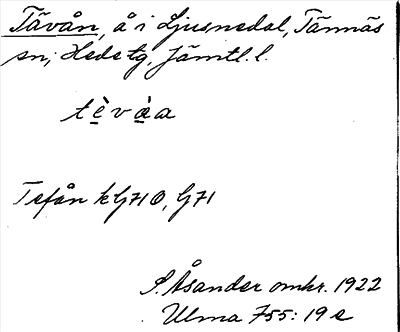 Tävån, å i Ljusnedal, Tännäs
sn, Hede tg, Jämtl. l.
tè̱và̱a
Tefån k G71Ö, G71
S. Åsander omkr. 1922
Ulma 755:19 e